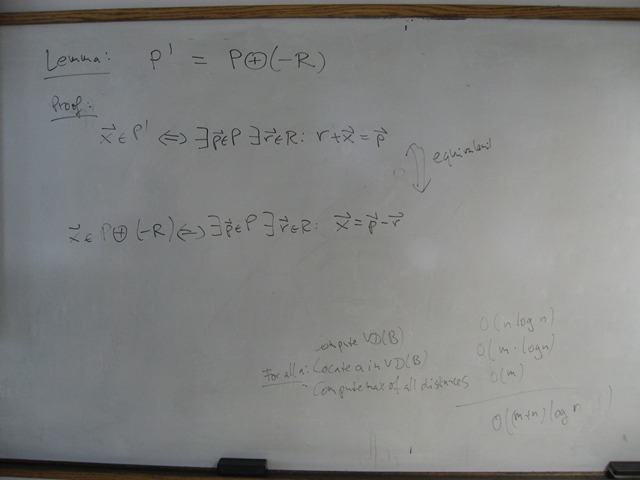 Lemma: P' = P⊕(-R)
Proof:
x⃗ ∈ P' ⇔ ∃p⃗∈P ∃r⃗∈R: r+x⃗ = p⃗
equivalent
x⃗ ∈ P⊕(-R) ⇔ ∃p⃗∈P ∃r⃗∈R: x⃗ = p⃗-r⃗
compute VD(B) O(n log n)
For all a: Locate a in VD(B) O(m · log n)
- Compute max of all distances O(m)
O((m+n) log n)